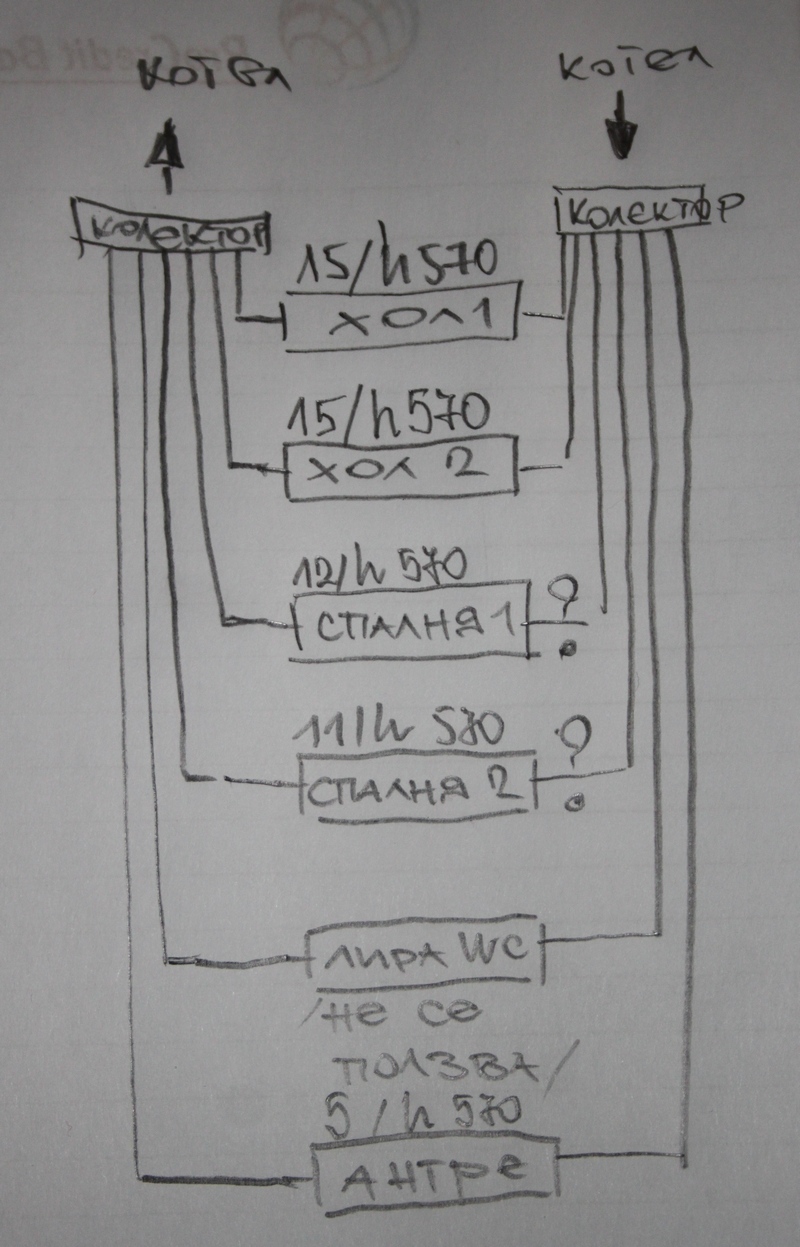 КОТЕЛ
КОТЕЛ
КОЛЕКТОР
КОЛЕКТОР
15/h 570
ХОЛ 1
15/h 570
ХОЛ 2
12/h 570
СПАЛНЯ 1
?
11/h 570
СПАЛНЯ 2
?
ЛИРА WC
/НЕ СЕ
ПОЛЗВА/
5/h 570
АНТРЕ